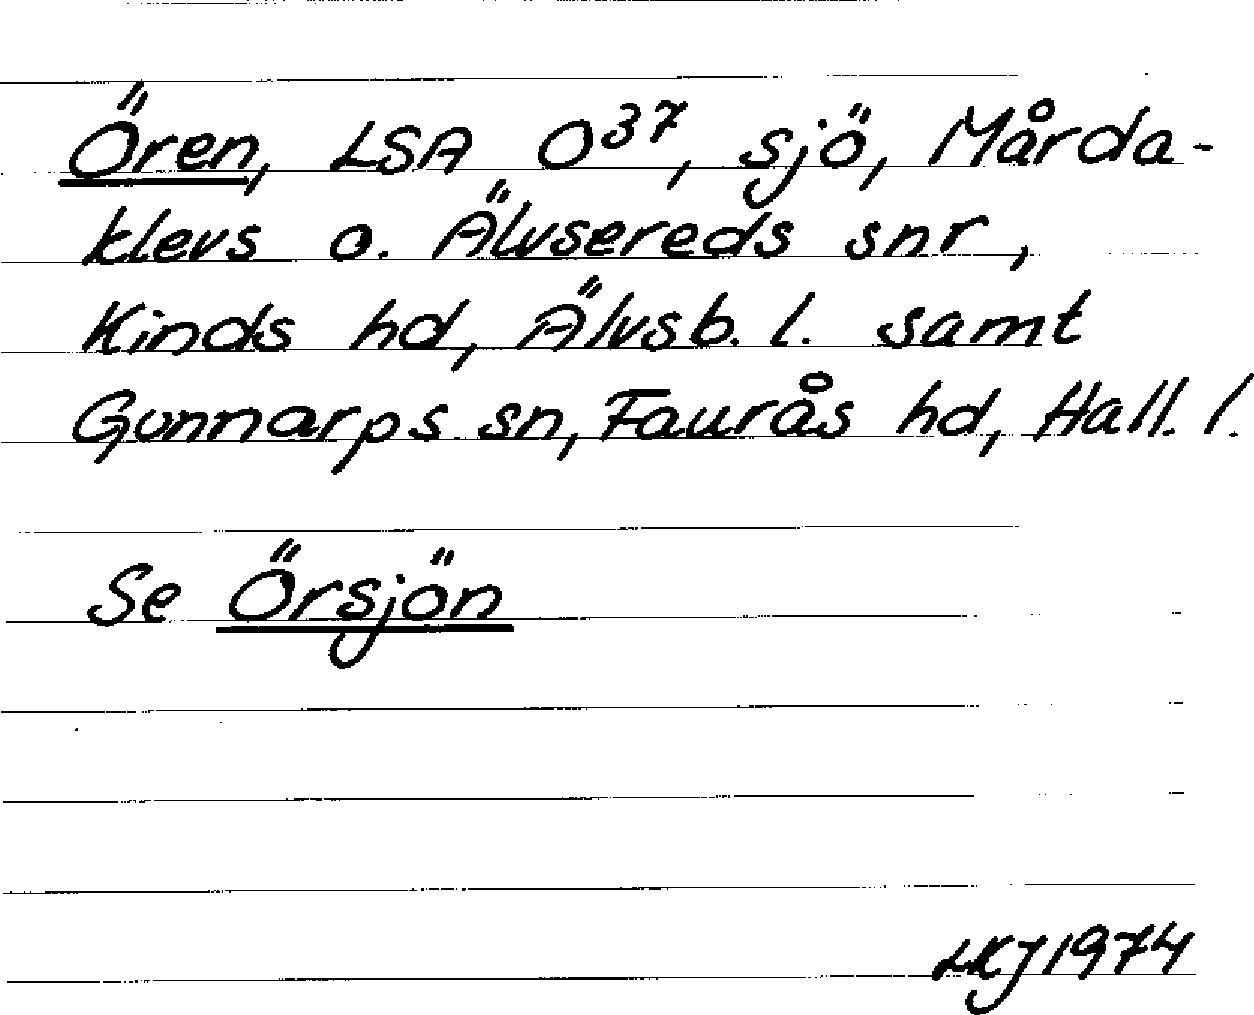 Ören, LSA O³⁷, sjö, Mårda-
klevs o. Älvsereds snr,
Kinds hd, Älvsb. l. samt
Gunnarps sn, Faurås hd, Hall. l.
Se Örsjön
LKJ 1974